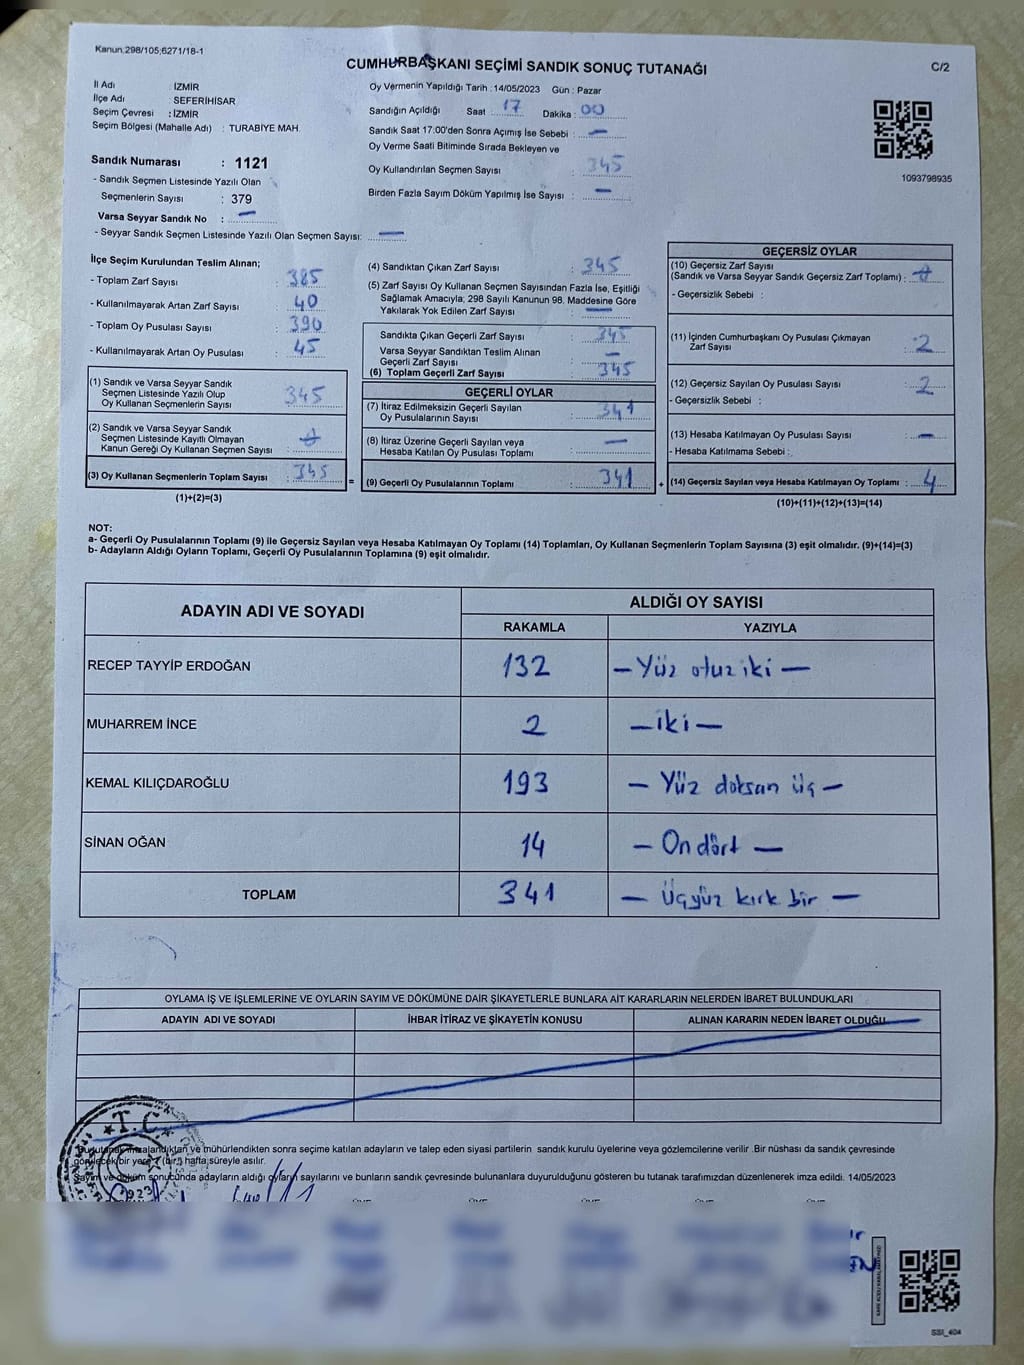 Kanun:298/105;6271/18-1
CUMHURBAŞKANI SEÇİMİ SANDIK SONUÇ TUTANAĞI
C/2
İl Adı : İZMİR
İlçe Adı : SEFERİHİSAR
Seçim Çevresi : İZMİR
Seçim Bölgesi (Mahalle Adı) : TURABİYE MAH.
Sandık Numarası : 1121
- Sandık Seçmen Listesinde Yazılı Olan
Seçmenlerin Sayısı : 379
Varsa Seyyar Sandık No : —
- Seyyar Sandık Seçmen Listesinde Yazılı Olan Seçmen Sayısı: —
Oy Vermenin Yapıldığı Tarih : 14/05/2023 Gün : Pazar
Sandığın Açıldığı Saat : 17 Dakika : 00
Sandık Saat 17:00'den Sonra Açımış İse Sebebi : —
Oy Verme Saati Bitiminde Sırada Bekleyen ve
Oy Kullandırılan Seçmen Sayısı : 345
Birden Fazla Sayım Döküm Yapılmış İse Sayısı : —
1093798935
İlçe Seçim Kurulundan Teslim Alınan;
- Toplam Zarf Sayısı : 385
- Kullanılmayarak Artan Zarf Sayısı : 40
- Toplam Oy Pusulası Sayısı : 390
- Kullanılmayarak Artan Oy Pusulası : 45
(1) Sandık ve Varsa Seyyar Sandık
Seçmen Listesinde Yazılı Olup
Oy Kullanan Seçmenlerin Sayısı : 345
(2) Sandık ve Varsa Seyyar Sandık
Seçmen Listesinde Kayıtlı Olmayan
Kanun Gereği Oy Kullanan Seçmen Sayısı : 0
(3) Oy Kullanan Seçmenlerin Toplam Sayısı : 345
(1)+(2)=(3)
(4) Sandıktan Çıkan Zarf Sayısı : 345
(5) Zarf Sayısı Oy Kullanan Seçmen Sayısından Fazla İse, Eşitliği
Sağlamak Amacıyla; 298 Sayılı Kanunun 98. Maddesine Göre
Yakılarak Yok Edilen Zarf Sayısı : —
Sandıkta Çıkan Geçerli Zarf Sayısı : 345
Varsa Seyyar Sandıktan Teslim Alınan
Geçerli Zarf Sayısı : —
(6) Toplam Geçerli Zarf Sayısı : 345
GEÇERLİ OYLAR
(7) İtiraz Edilmeksizin Geçerli Sayılan
Oy Pusulalarının Sayısı : 341
(8) İtiraz Üzerine Geçerli Sayılan veya
Hesaba Katılan Oy Pusulası Toplamı : —
(9) Geçerli Oy Pusulalarının Toplamı : 341
GEÇERSİZ OYLAR
(10) Geçersiz Zarf Sayısı
(Sandık ve Varsa Seyyar Sandık Geçersiz Zarf Toplamı) : 0
- Geçersizlik Sebebi :
(11) İçinden Cumhurbaşkanı Oy Pusulası Çıkmayan
Zarf Sayısı : 2
(12) Geçersiz Sayılan Oy Pusulası Sayısı : 2
- Geçersizlik Sebebi :
(13) Hesaba Katılmayan Oy Pusulası Sayısı : —
- Hesaba Katılmama Sebebi :
(14) Geçersiz Sayılan veya Hesaba Katılmayan Oy Toplamı : 4
(10)+(11)+(12)+(13)=(14)
NOT:
a- Geçerli Oy Pusulalarının Toplamı (9) ile Geçersiz Sayılan veya Hesaba Katılmayan Oy Toplamı (14) Toplamları, Oy Kullanan Seçmenlerin Toplam Sayısına (3) eşit olmalıdır. (9)+(14)=(3)
b- Adayların Aldığı Oyların Toplamı, Geçerli Oy Pusulalarının Toplamına (9) eşit olmalıdır.
ADAYIN ADI VE SOYADI ALDIĞI OY SAYISI
RAKAMLA YAZIYLA
RECEP TAYYİP ERDOĞAN 132 — Yüz otuz iki —
MUHARREM İNCE 2 — iki —
KEMAL KILIÇDAROĞLU 193 — Yüz doksan üç —
SİNAN OĞAN 14 — On dört —
TOPLAM 341 — Üçyüz kırk bir —
OYLAMA İŞ VE İŞLEMLERİNE VE OYLARIN SAYIM VE DÖKÜMÜNE DAİR ŞİKAYETLERLE BUNLARA AİT KARARLARIN NELERDEN İBARET BULUNDUKLARI
ADAYIN ADI VE SOYADI İHBAR İTİRAZ VE ŞİKAYETİN KONUSU ALINAN KARARIN NEDEN İBARET OLDUĞU
T.C.
Bu tutanak imzalandıktan ve mühürlendikten sonra seçime katılan adayların ve talep eden siyasi partilerin sandık kurulu üyelerine veya gözlemcilerine verilir. Bir nüshası da sandık çevresinde
görülecek bir yere 7 (bir) hafta süreyle asılır.
Sayım ve döküm sonucunda adayların aldığı oyların sayılarını ve bunların sandık çevresinde bulunanlara duyurulduğunu gösteren bu tutanak tarafımızdan düzenlenerek imza edildi. 14/05/2023
1923
SSI_404